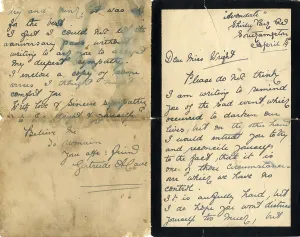 Avondale
Shirley Park Rd
Southampton
April 15
Dear Miss Wright
Please do not think
I am writing to remind
you of the sad event which
occurred to darken our
lives, but on the other hand
I would entreat you to try
and reconcile yourself
to the fact that it is
one of those circumstances
are which we have no
control.
It is awfully hard, but
I do hope you won't distress
yourself too much, but
try and it was
for the best
I felt I could not let the
anniversary pass without
writing to ask you to accept
my deepest sympathy
I enclose a copy of
verses I
comfort you
With love & sincere sympathy
Believe me
To remain
Your aff: friend
Gertrude A